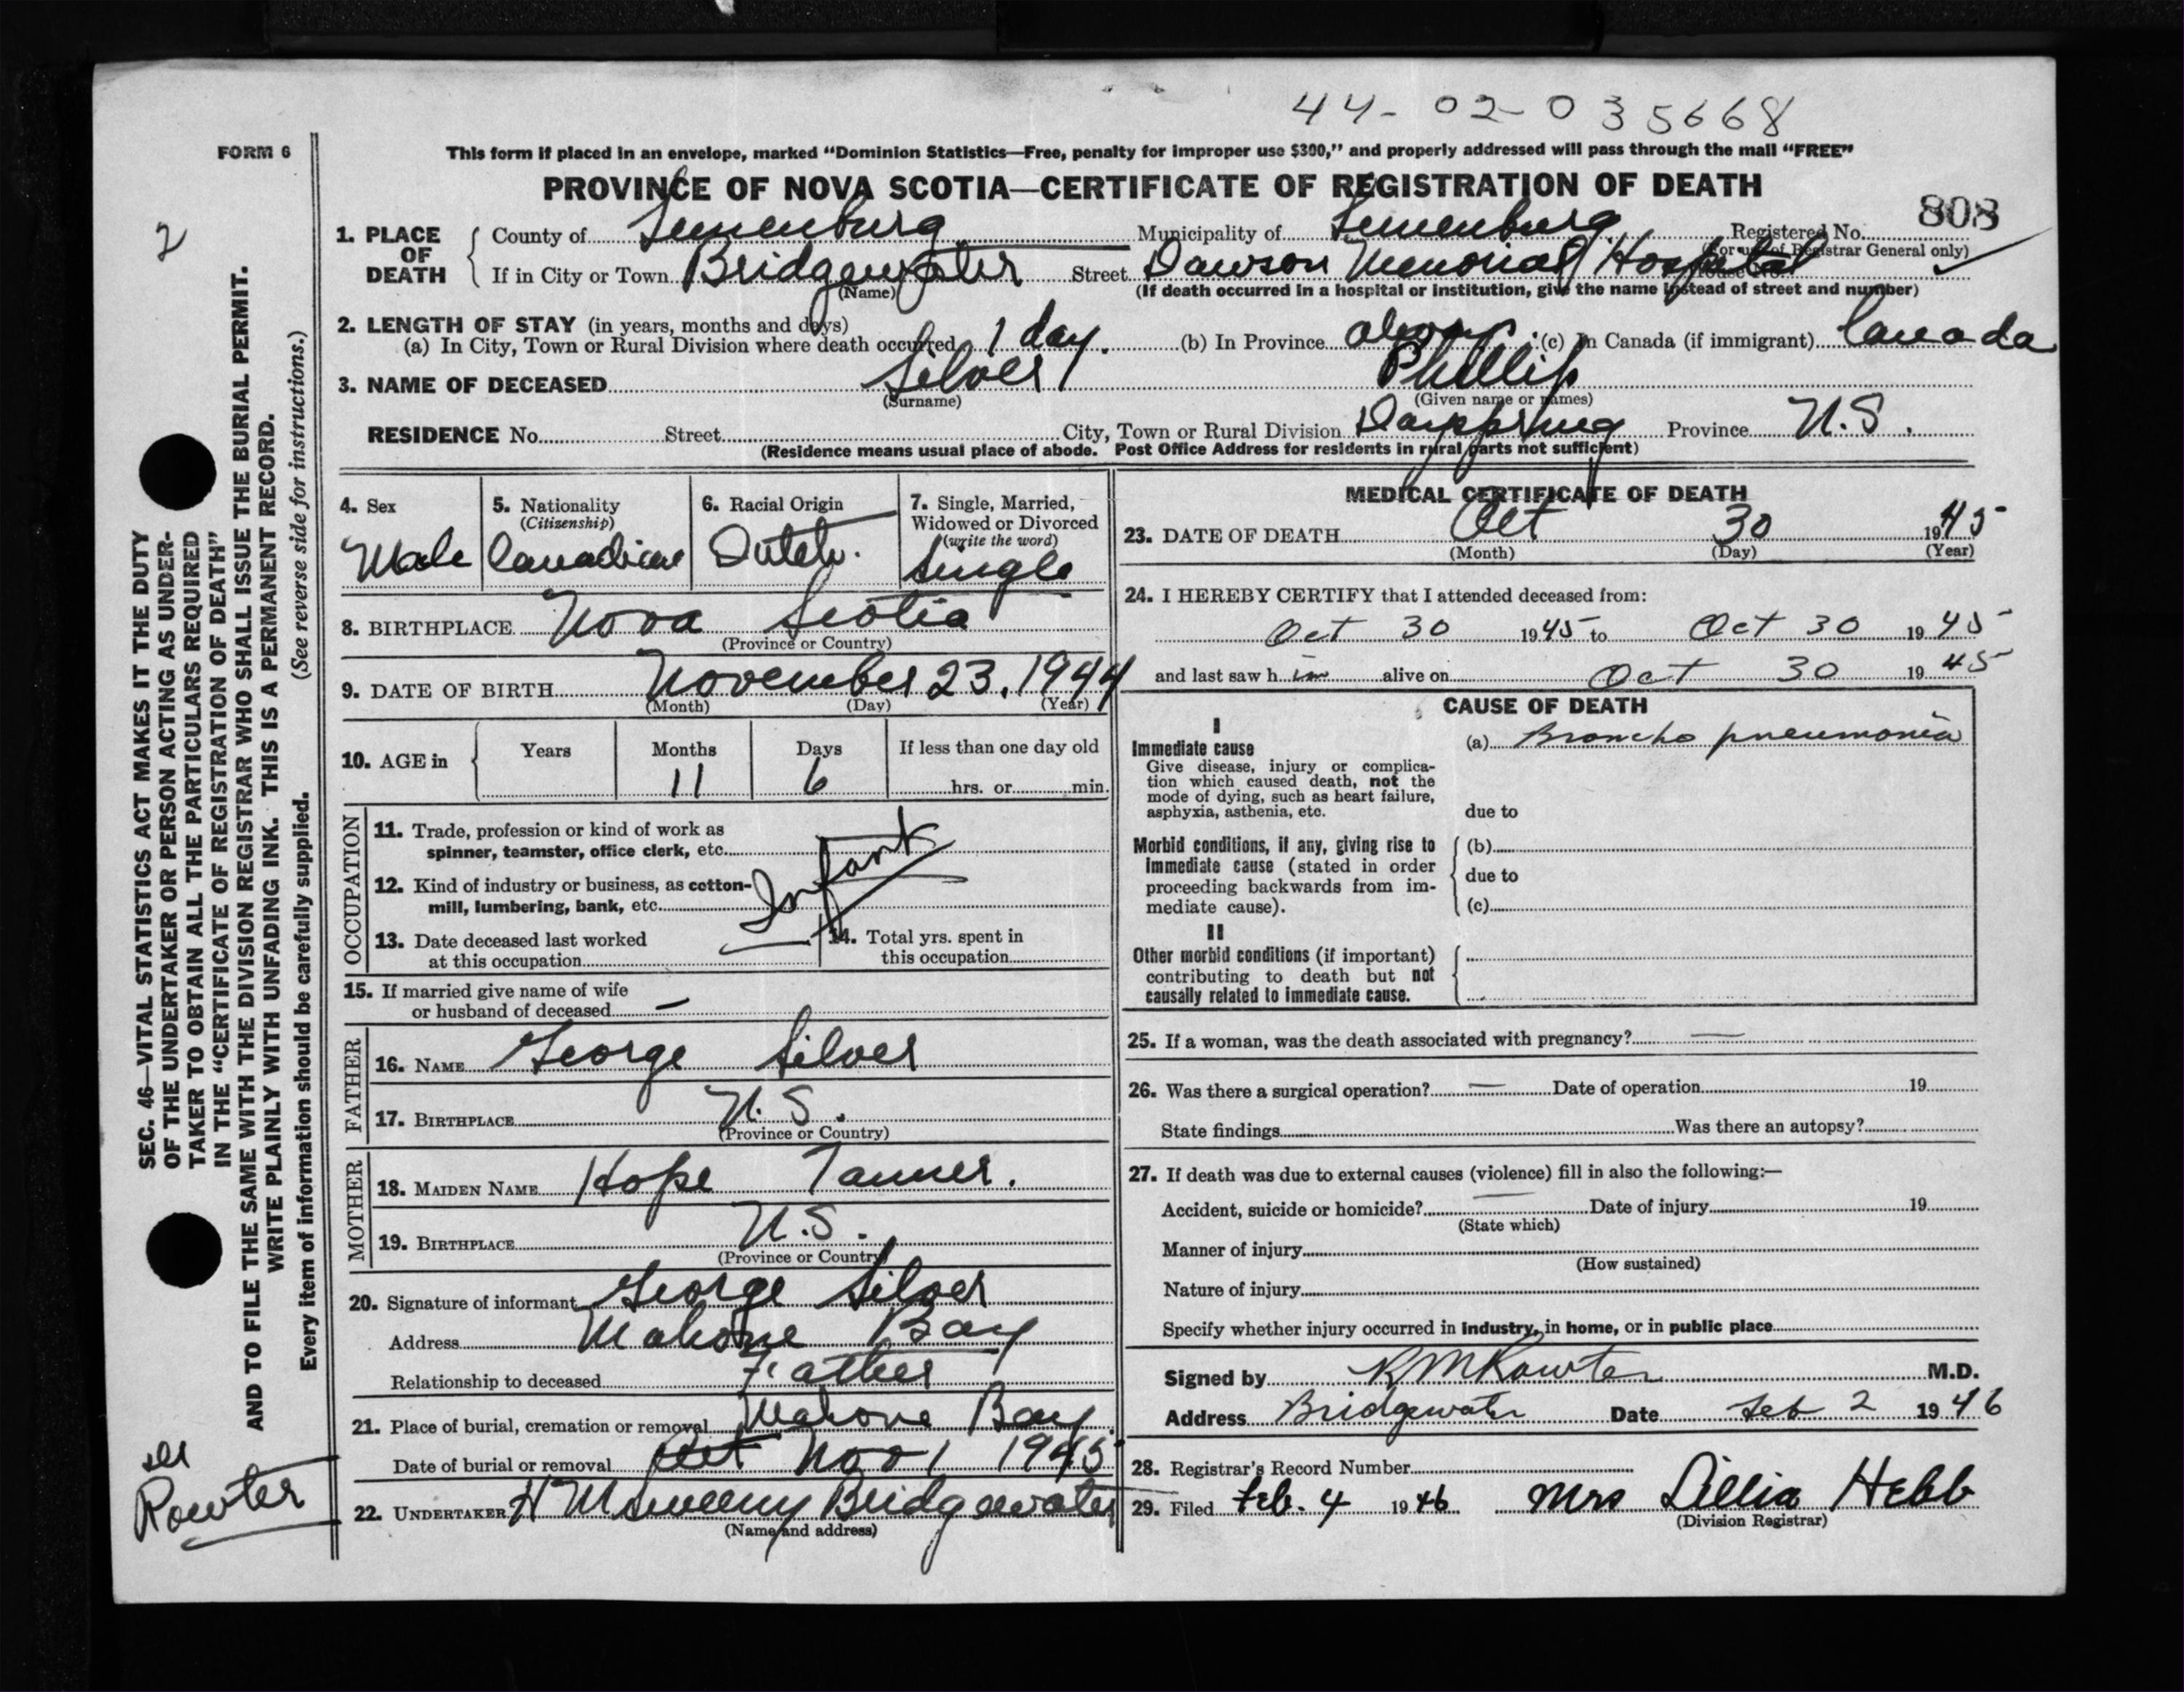 44-02-035668
FORM 6
This form if placed in an envelope, marked “Dominion Statistics—Free, penalty for improper use $300,” and properly addressed will pass through the mail “FREE”
PROVINCE OF NOVA SCOTIA—CERTIFICATE OF REGISTRATION OF DEATH
808
2
1. PLACE OF DEATH County of Lunenburg Municipality of Lunenburg Registered No.
(For use of Registrar General only)
If in City or Town Bridgewater Street Dawson Memorial Hospital House No.
(Name) (If death occurred in a hospital or institution, give the name instead of street and number)
2. LENGTH OF STAY (in years, months and days)
(a) In City, Town or Rural Division where death occurred 1 day. (b) In Province always (c) In Canada (if immigrant) Canada
3. NAME OF DECEASED Silver Phillip
(Surname) (Given name or names)
RESIDENCE No. Street City, Town or Rural Division Dayspring Province N.S.
(Residence means usual place of abode. Post Office Address for residents in rural parts not sufficient)
4. Sex 5. Nationality (Citizenship) 6. Racial Origin 7. Single, Married, Widowed or Divorced (write the word)
Male Canadian Dutch. Single
8. BIRTHPLACE Nova Scotia
(Province or Country)
9. DATE OF BIRTH November 23, 1944
(Month) (Day) (Year)
10. AGE in Years Months Days If less than one day old
11 6 hrs. or min.
OCCUPATION
11. Trade, profession or kind of work as
spinner, teamster, office clerk, etc.
Infant
12. Kind of industry or business, as cotton-
mill, lumbering, bank, etc.
13. Date deceased last worked
at this occupation
14. Total yrs. spent in
this occupation
15. If married give name of wife
or husband of deceased —
FATHER
16. NAME George Silver
17. BIRTHPLACE N.S.
(Province or Country)
MOTHER
18. MAIDEN NAME Hope Tanner.
19. BIRTHPLACE N.S.
(Province or Country)
20. Signature of informant George Silver
Address Mahone Bay
Relationship to deceased Father
21. Place of burial, cremation or removal Mahone Bay
Date of burial or removal Oct Nov 1 1945
22. UNDERTAKER H M Sweeny Bridgewater
(Name and address)
MEDICAL CERTIFICATE OF DEATH
23. DATE OF DEATH Oct 30 1945
(Month) (Day) (Year)
24. I HEREBY CERTIFY that I attended deceased from:
Oct 30 1945 to Oct 30 1945
and last saw him alive on Oct 30 1945
CAUSE OF DEATH
I
Immediate cause
Give disease, injury or complica-
tion which caused death, not the
mode of dying, such as heart failure,
asphyxia, asthenia, etc.
(a) Broncho pneumonia
due to
Morbid conditions, if any, giving rise to
immediate cause (stated in order
proceeding backwards from im-
mediate cause).
(b)
due to
(c)
II
Other morbid conditions (if important)
contributing to death but not
causally related to immediate cause.
25. If a woman, was the death associated with pregnancy? —
26. Was there a surgical operation? — Date of operation 19
State findings Was there an autopsy?
27. If death was due to external causes (violence) fill in also the following:—
Accident, suicide or homicide? — Date of injury 19
(State which)
Manner of injury
(How sustained)
Nature of injury
Specify whether injury occurred in industry, in home, or in public place
Signed by R M Rowter M.D.
Address Bridgewater Date Feb 2 1946
28. Registrar's Record Number
29. Filed Feb. 4 1946 Mrs Lillia Hebb
(Division Registrar)
SEC. 46—VITAL STATISTICS ACT MAKES IT THE DUTY
OF THE UNDERTAKER OR PERSON ACTING AS UNDER-
TAKER TO OBTAIN ALL THE PARTICULARS REQUIRED
IN THE “CERTIFICATE OF REGISTRATION OF DEATH”
AND TO FILE THE SAME WITH THE DIVISION REGISTRAR WHO SHALL ISSUE THE BURIAL PERMIT.
WRITE PLAINLY WITH UNFADING INK. THIS IS A PERMANENT RECORD.
Every item of information should be carefully supplied. (See reverse side for instructions.)
Rowter